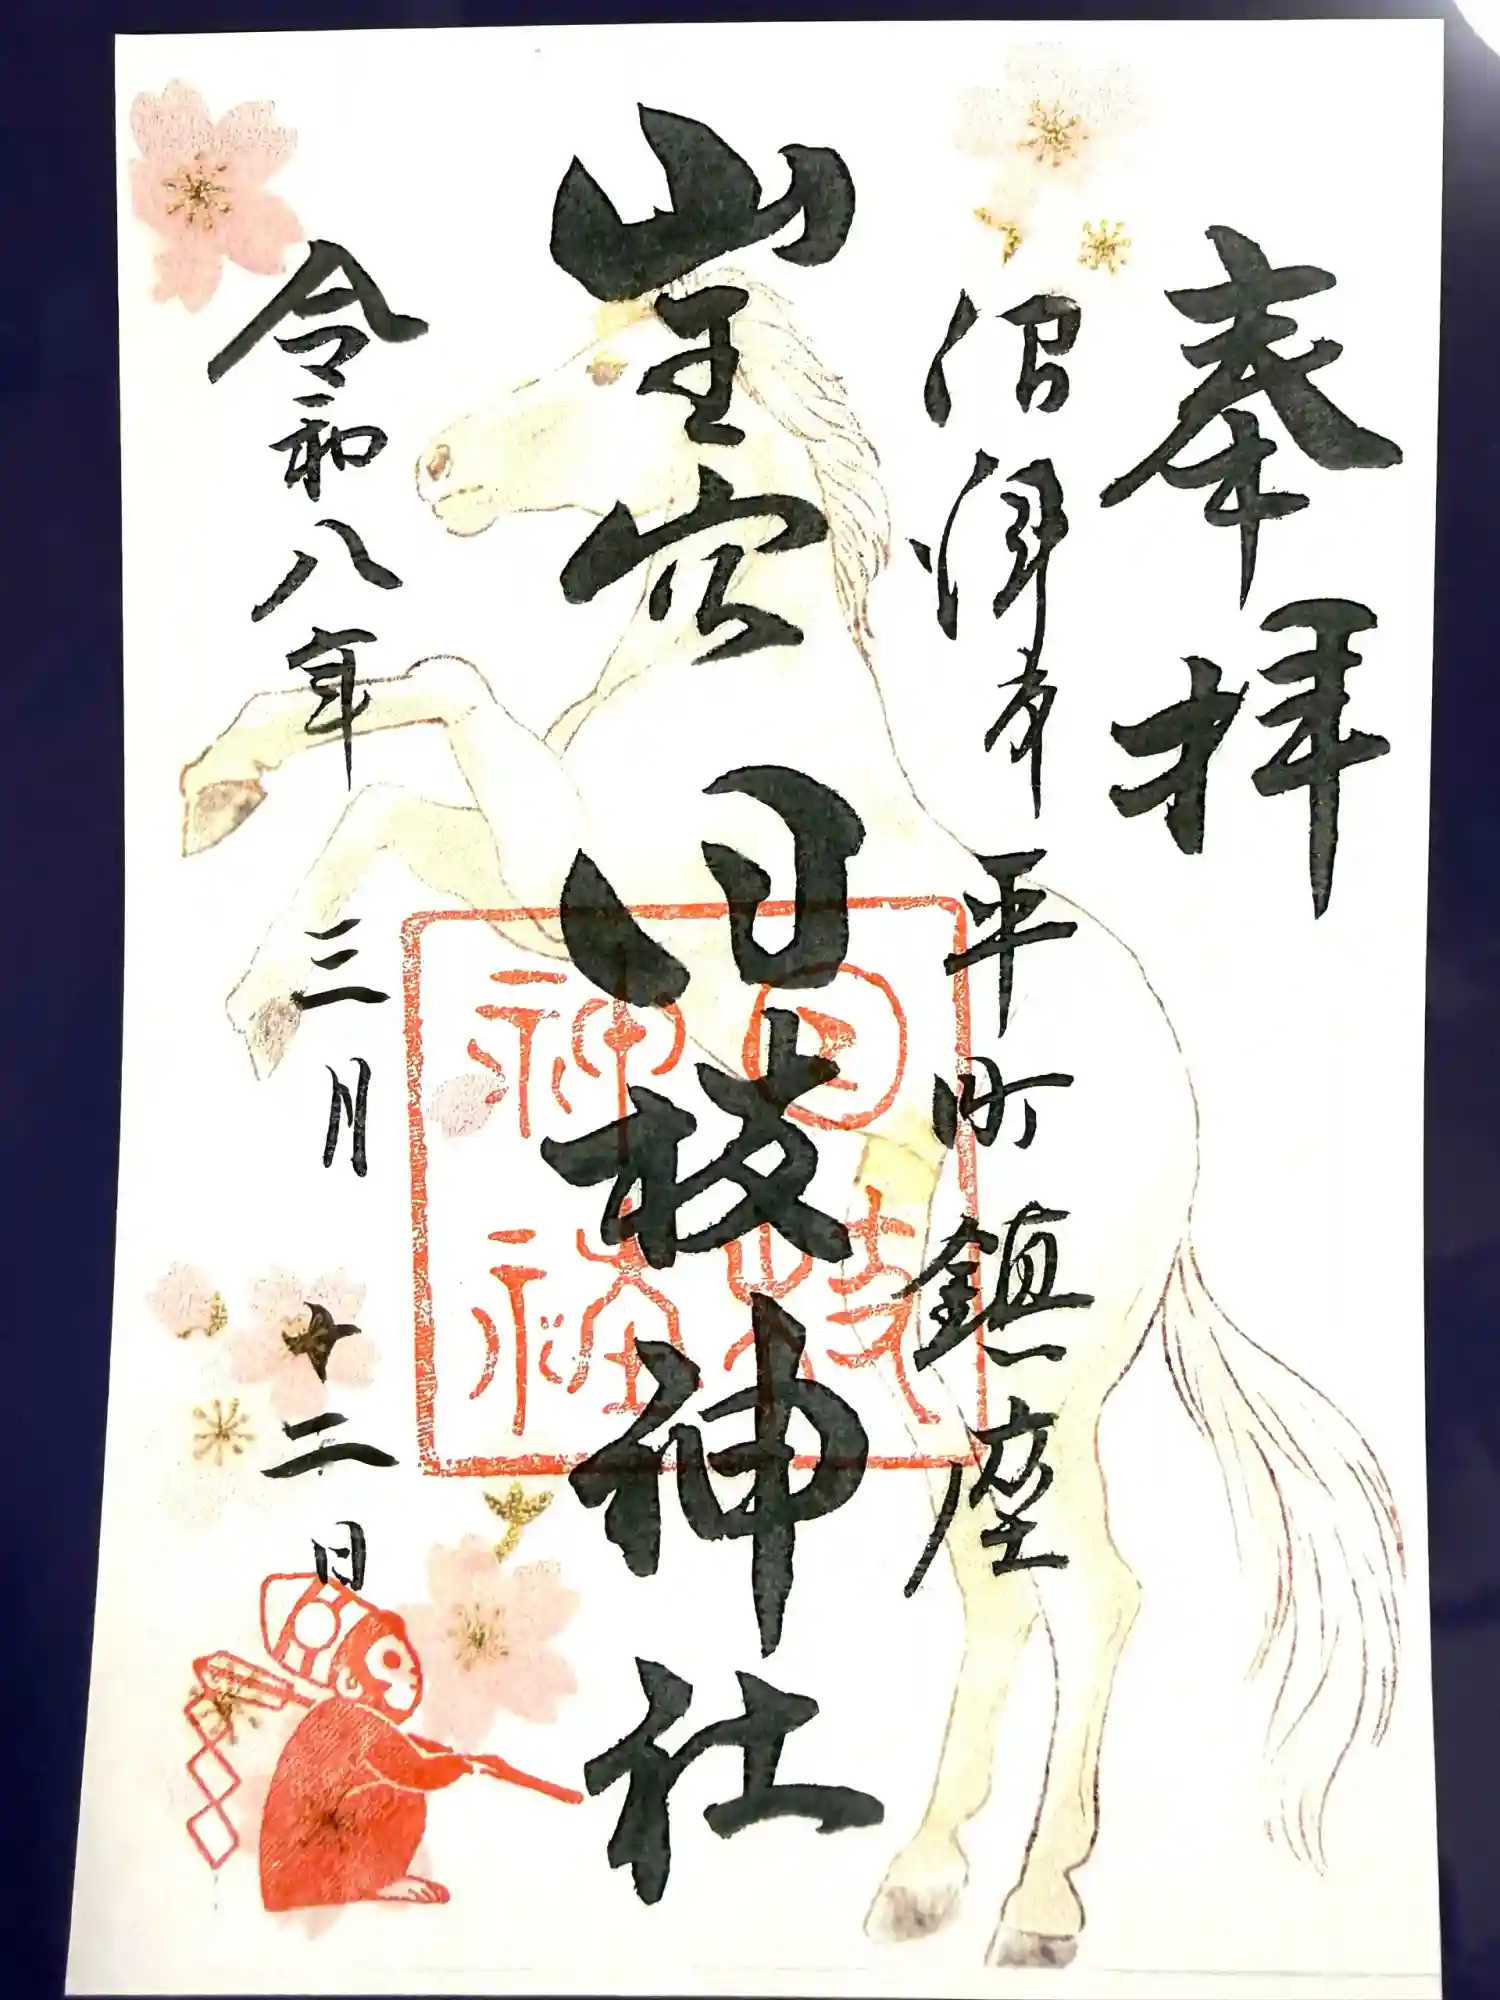 奉拝
沼津市平町鎮座
山王宮 日枝神社
令和八年三月十二日
日枝
神社